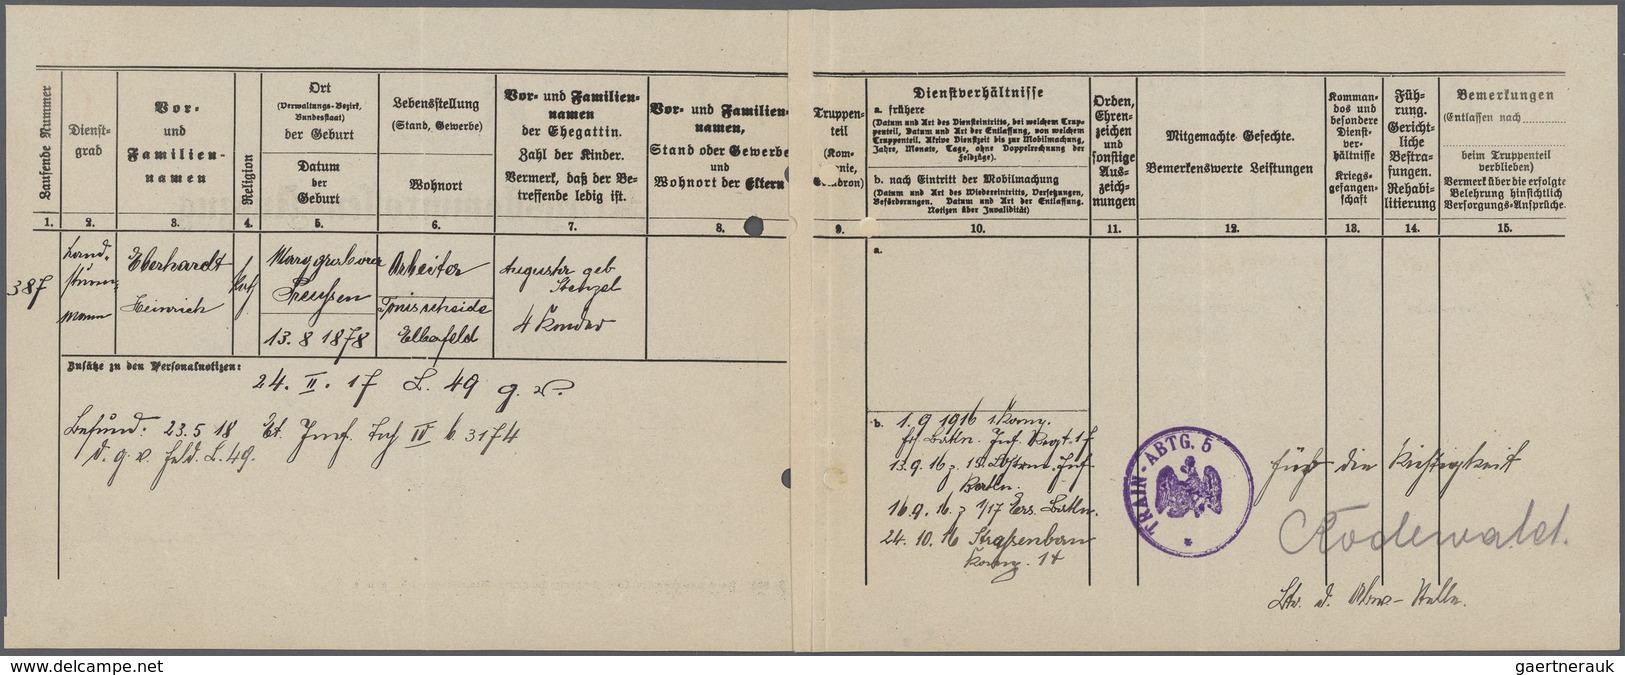 Laufende Nummer
Dienst-
grad
Vor-
und
Familien-
namen
Religion
Ort
(Verwaltungs-Bezirk,
Bundesstaat)
der Geburt
Datum
der
Geburt
Lebensstellung
(Stand, Gewerbe)
Wohnort
Vor- und Familien-
namen
der Ehegattin.
Zahl der Kinder.
Vermerk, daß der Be-
treffende ledig ist.
Vor- und Familien-
namen,
Stand oder Gewerbe
und
Wohnort der Eltern
Truppen-
teil
(Kom-
nie,
dron)
Dienstverhältnisse
a. frühere
(Datum und Art des Diensteintritts, bei welchem Trup-
penteil, Datum und Art der Entlassung, von welchem
Truppenteil. Aktive Dienstzeit bis zur Mobilmachung,
Jahre, Monate, Tage, ohne Doppelrechnung der
Feldzüge).
b. nach Eintritt der Mobilmachung
(Datum und Art des Wiedereintritts, Versetzungen,
Beförderungen. Datum und Art der Entlassung.
Notizen über Invalidität)
Orden,
Ehren-
zeichen
und
sonstige
Aus-
zeich-
nungen
Mitgemachte Gefechte.
Bemerkenswerte Leistungen
Komman-
dos und
besondere
Dienst-
ver-
hältnisse
Kriegs-
gefangen-
schaft
Füh-
rung.
Gericht-
liche
Bestra-
fungen.
Rehabi-
litierung
Bemerkungen
(Entlassen nach
beim Truppenteil
verblieben)
Vermerk über die erfolgte
Belehrung hinsichtlich
Versorgungs-Ansprüche.
1. 2. 3. 4. 5. 6. 7. 8. 9. 10. 11. 12. 13. 14. 15.
387
Land-
sturm-
mann
Eberhardt
Heinrich
Marggrabowa
Preußen
13. 8 1878
Arbeiter
Elberfeld
Auguste geb
Stenzel
4 Kinder
a.
Zusätze zu den Personalnotizen:
24. II. 17 L. 49 g. v.
Befund: 23.5 18 IV b. 3174
d. g. v. Feld. L. 49.
b. 1. 9 1916 1. Komp.
Batln. Inf. Regt. 17
13. 9. 16 z. Inf.
Batln.
16. 9. 16. z 1/17 Ers. Batln.
24. 10. 16 Straßenbau
Komp. 14
TRAIN-ABTG. 5
*
Für die Richtigkeit
Rodewald.
gaertnerauk
www.delcampe.net